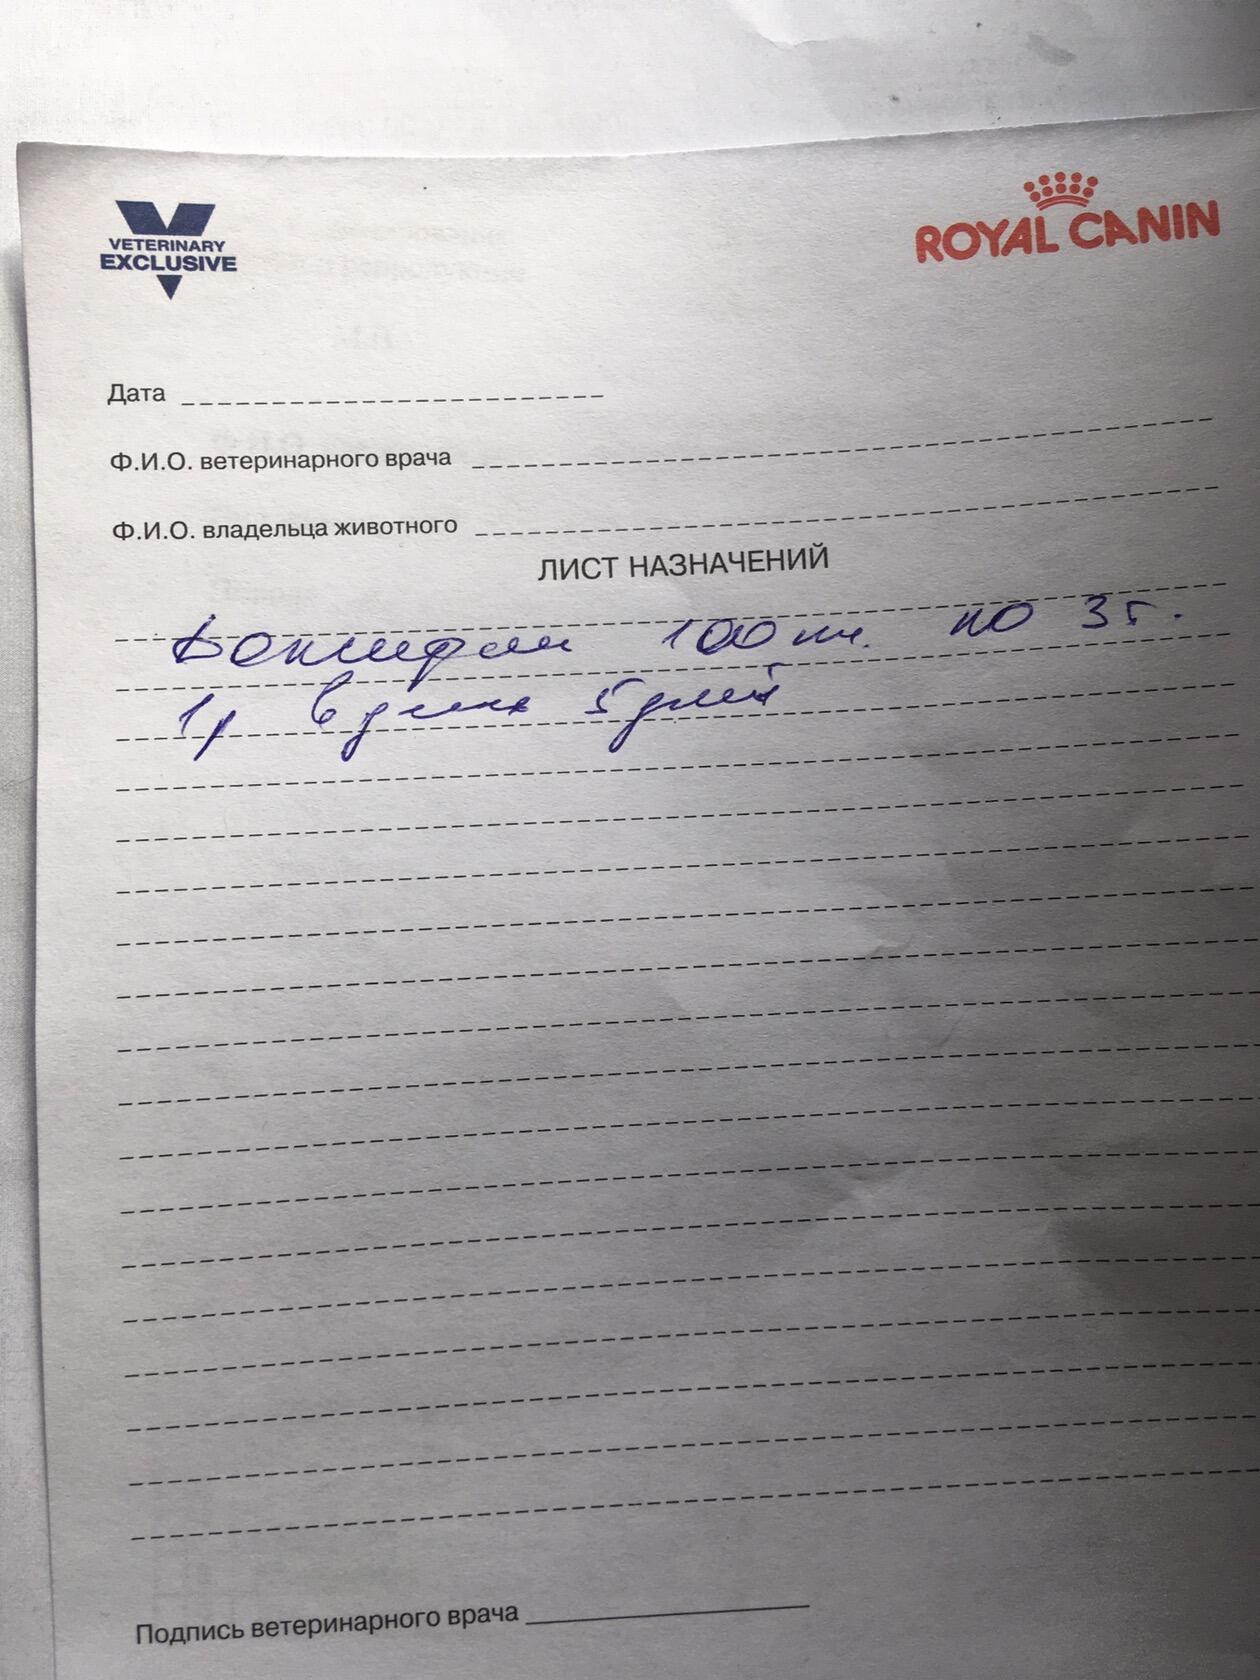 VETERINARY
EXCLUSIVE
ROYAL CANIN
Дата
Ф.И.О. ветеринарного врача
Ф.И.О. владельца животного
ЛИСТ НАЗНАЧЕНИЙ
100 мл. по 3 г.
1р в день 5 дней
Подпись ветеринарного врача